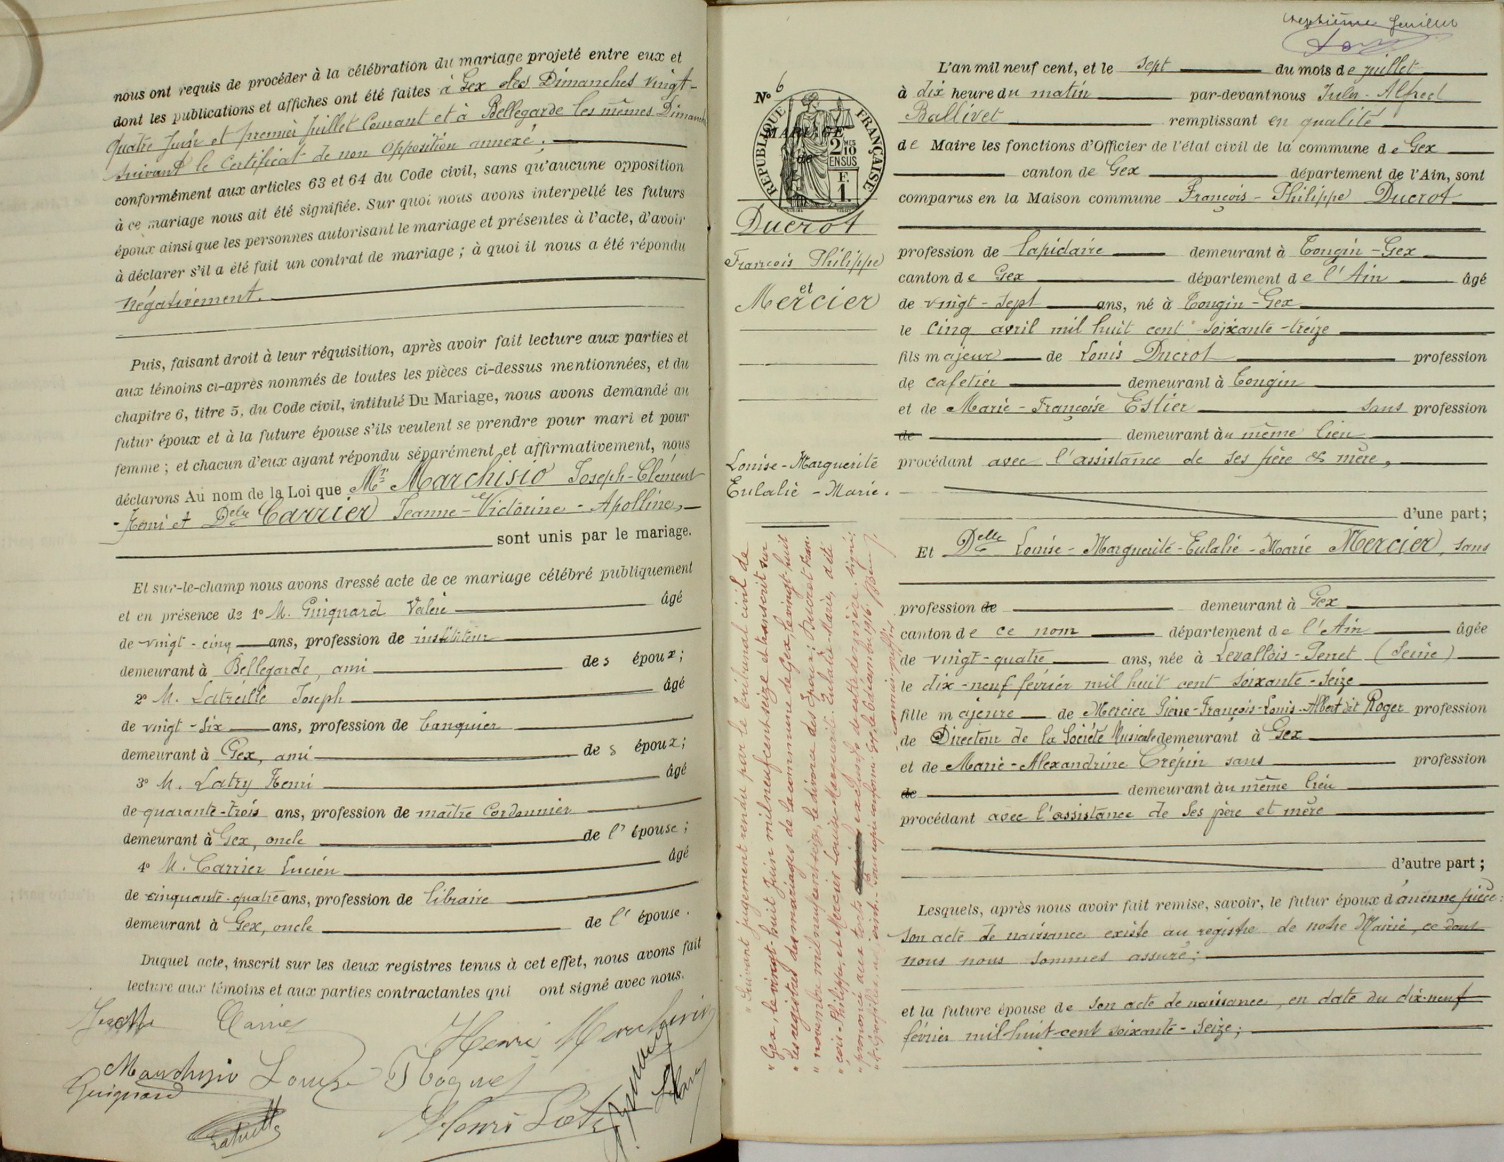 nous ont requis de procéder à la célébration du mariage projeté entre eux et
dont les publications et affiches ont été faites à Gex les Dimanches vingt-
quatre Juin et premier Juillet Courant et à Bellegarde les mêmes Dimanches
suivant le Certificat de non opposition annexé;
conformément aux articles 63 et 64 du Code civil, sans qu'aucune opposition
à ce mariage nous ait été signifiée. Sur quoi nous avons interpellé les futurs
époux ainsi que les personnes autorisant le mariage et présentes à l'acte, d'avoir
à déclarer s'il a été fait un contrat de mariage ; à quoi il nous a été répondu
négativement.
Puis, faisant droit à leur réquisition, après avoir fait lecture aux parties et
aux témoins ci-après nommés de toutes les pièces ci-dessus mentionnées, et du
chapitre 6, titre 5, du Code civil, intitulé Du Mariage, nous avons demandé au
futur époux et à la future épouse s'ils veulent se prendre pour mari et pour
femme ; et chacun d'eux ayant répondu séparément et affirmativement, nous
déclarons Au nom de la Loi que Mr Marchisio Joseph-Clément
-Henri et Delle Carrier Jeanne-Victorine-Apolline,
sont unis par le mariage.
Et sur-le-champ nous avons dressé acte de ce mariage célébré publiquement
et en présence de 1° M. Guignard Valérie âgé
de vingt-cinq ans, profession de instituteur
demeurant à Bellegarde, ami des époux;
2° M. Latreille Joseph âgé
de vingt-six ans, profession de banquier
demeurant à Gex, ami des époux;
3° M. Latry Henri âgé
de quarante-trois ans, profession de maître cordonnier
demeurant à Gex, oncle de l'épouse;
4° M. Carrier Lucien âgé
de cinquante-quatre ans, profession de libraire
demeurant à Gex, oncle de l'épouse.
Duquel acte, inscrit sur les deux registres tenus à cet effet, nous avons fait
lecture aux témoins et aux parties contractantes qui ont signé avec nous.
Henri Marchisio
Marchisio
Guignard
Henri
septième feuillet
N° 6
MARIAGE
RÉPUBLIQUE FRANÇAISE
2/10 EN SUS
F. 1
Ducrot
François Philippe
et
Mercier
Louise-Marguerite
Eulalie-Marie.
Suivant jugement rendu par le tribunal civil de
Gex, le vingt-huit Juin mil neuf cent seize et transcrit sur
les registres des mariages de la commune de Gex, le vingt-huit
novembre mil neuf cent seize, le divorce des époux: Ducrot Fran-
çois-Philippe, et Mercier Louise-Marguerite-Eulalie-Marie, a été
prononcé aux torts exclusifs de cette dernière.
L'an mil neuf cent, et le sept du mois de juillet
à dix heure du matin par-devant nous Jules-Alfred
Ballivet remplissant en qualité
de Maire les fonctions d'Officier de l'état civil de la commune de Gex
canton de Gex département de l'Ain, sont
comparus en la Maison commune François-Philippe Ducrot
profession de lapidaire demeurant à Tougin-Gex
canton de Gex département de l'Ain âgé
de vingt-sept ans, né à Tougin-Gex
le cinq avril mil huit cent soixante-treize
fils majeur de Louis Ducrot profession
de cafetier demeurant à Tougin
et de Marie-Françoise Estier sans profession
de demeurant au même lieu
procédant avec l'assistance de ses père & mère,
d'une part;
Et Delle Louise-Marguerite-Eulalie-Marie Mercier, sans
profession de demeurant à Gex
canton de ce nom département de l'Ain âgée
de vingt-quatre ans, née à Levallois-Perret (Seine)
le dix-neuf février mil huit cent soixante-seize
fille majeure de Mercier Pierre-François-Louis-Albert dit Roger profession
de Directeur de la Société Musicale demeurant à Gex
et de Marie-Alexandrine Crépin sans profession
de demeurant au même lieu
procédant avec l'assistance de ses père et mère
d'autre part ;
Lesquels, après nous avoir fait remise, savoir, le futur époux d'aucune pièce:
son acte de naissance existe au registre de notre Mairie, ce dont
nous nous sommes assuré;
et la future épouse de son acte de naissance, en date du dix-neuf
février mil huit-cent soixante-seize;